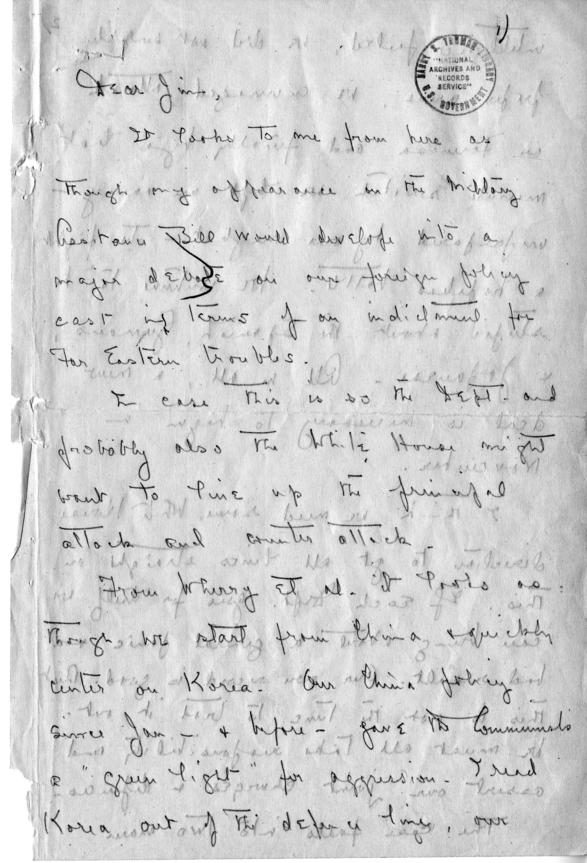 1)
HARRY S. TRUMAN LIBRARY
"NATIONAL
ARCHIVES AND
RECORDS
SERVICE"
U.S. GOVERNMENT
Dear Jim,
It looks to me from here as
though my appearance on the Military
Assistance Bill would develope into a
major debate on our foreign policy
cast in terms of an indictment for
Far Eastern troubles.
In case this is so the Dept. and
probably also the White House might
want to line up the principal
attack and counter attack.
From Wherry et al. it looks as
though we start from China & quickly
center on Korea. Our China policy
since Jan - & before - gave the Communists
a "green light" for aggression. I read
Korea out of the defense line, our